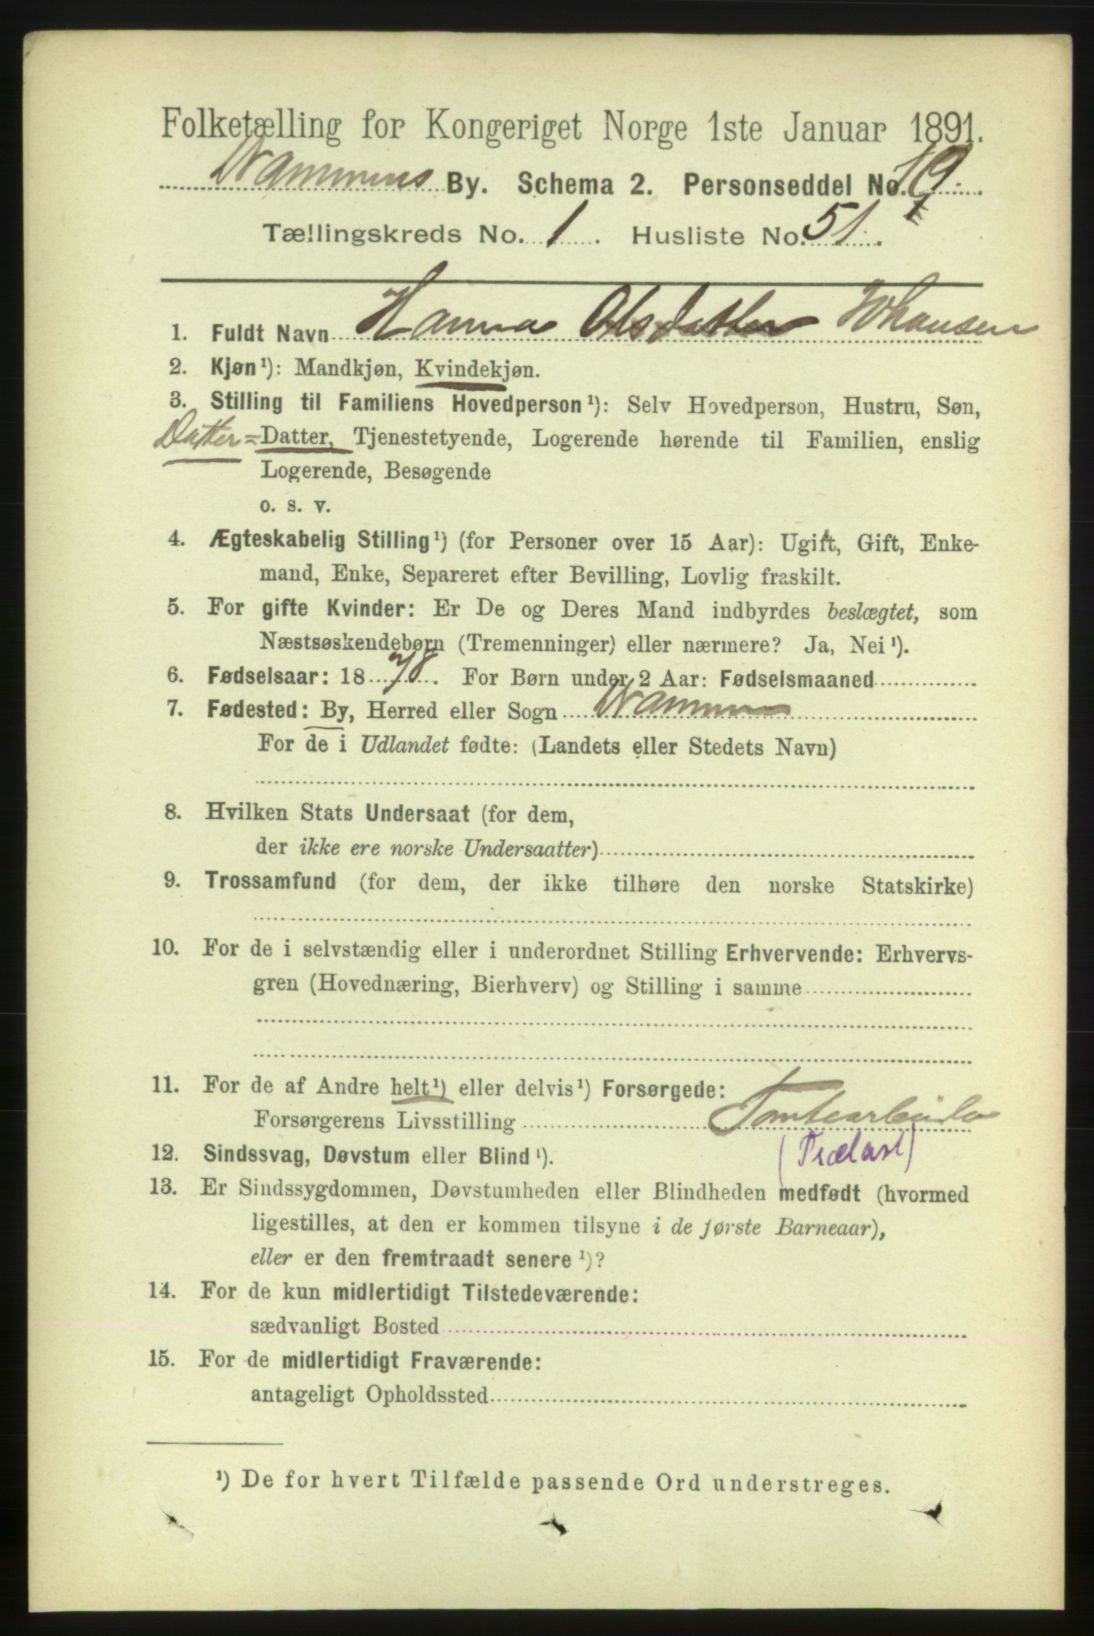 Folketælling for Kongeriget Norge 1ste Januar 1891.
Drammens By. Schema 2. Personseddel No. 19.
Tællingskreds No. 1. Husliste No. 51.
1. Fuldt Navn Hanna Olsdatter Johansen
2. Kjøn ¹): Mandkjøn, Kvindekjøn.
3. Stilling til Familiens Hovedperson ¹): Selv Hovedperson, Hustru, Søn,
Datter = Datter, Tjenestetyende, Logerende hørende til Familien, enslig
Logerende, Besøgende
o. s. v.
4. Ægteskabelig Stilling ¹) (for Personer over 15 Aar): Ugift, Gift, Enke-
mand, Enke, Separeret efter Bevilling, Lovlig fraskilt.
5. For gifte Kvinder: Er De og Deres Mand indbyrdes beslægtet, som
Næstsøskendebørn (Tremenninger) eller nærmere? Ja, Nei ¹).
6. Fødselsaar: 1878. For Børn under 2 Aar: Fødselsmaaned
7. Fødested: By, Herred eller Sogn Drammen
For de i Udlandet fødte: (Landets eller Stedets Navn)
8. Hvilken Stats Undersaat (for dem,
der ikke ere norske Undersaatter)
9. Trossamfund (for dem, der ikke tilhøre den norske Statskirke)
10. For de i selvstændig eller i underordnet Stilling Erhvervende: Erhvervs-
gren (Hovednæring, Bierhverv) og Stilling i samme
11. For de af Andre helt ¹) eller delvis ¹) Forsørgede:
Forsørgerens Livsstilling Tomtearbeider
(Trælast)
12. Sindssvag, Døvstum eller Blind ¹).
13. Er Sindssygdommen, Døvstumheden eller Blindheden medfødt (hvormed
ligestilles, at den er kommen tilsyne i de første Barneaar),
eller er den fremtraadt senere ¹)?
14. For de kun midlertidigt Tilstedeværende:
sædvanligt Bosted
15. For de midlertidigt Fraværende:
antageligt Opholdssted
¹) De for hvert Tilfælde passende Ord understreges.